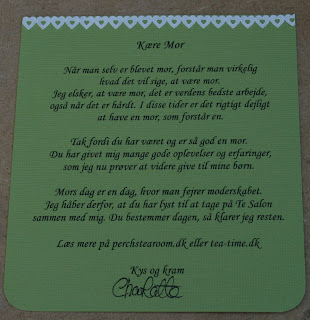 Kære Mor
Når man selv er blevet mor, forstår man virkelig
hvad det vil sige, at være mor.
Jeg elsker, at være mor, det er verdens bedste arbejde,
også når det er hårdt. I disse tider er det rigtigt dejligt
at have en mor, som forstår en.
Tak fordi du har været og er så god en mor.
Du har givet mig mange gode oplevelser og erfaringer,
som jeg nu prøver at videre give til mine børn.
Mors dag er en dag, hvor man fejrer moderskabet.
Jeg håber derfor, at du har lyst til at tage på Te Salon
sammen med mig. Du bestemmer dagen, så klarer jeg resten.
Læs mere på perchstearoom.dk eller tea-time.dk
Kys og kram
Charlotte